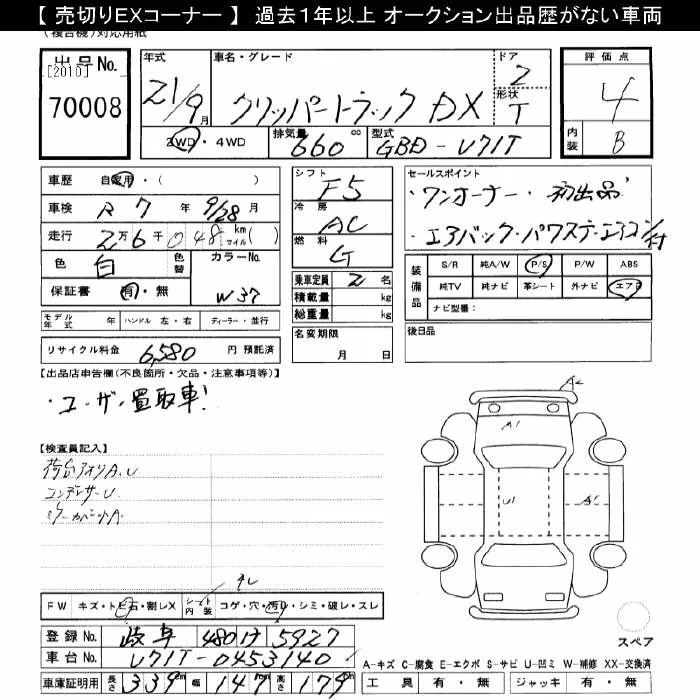 【 売切りEXコーナー 】 過去1年以上 オークション出品歴がない車両
(複合機)対応用紙
出品No.
[2010]
70008
年式
21/9月
車名・グレード
クリッパートラック DX
ドア
2
形状
T
評価点
4
内装
B
2WD・4WD
排気量
660 cc
型式
GBD-U71T
車歴 自家用・( )
車検 R7年 9/28月
走行 2万6千048 km マイル( )
色 白 色替 カラーNo.
W37
保証書 有・無
シフト
F5
冷房
AC
燃料
G
乗車定員 2名
積載量 kg
総重量 kg
セールスポイント
・ワンオーナー・初出品
・エアバック・パワステ・エアコン付
装備品
S/R 純A/W P/S P/W ABS
純TV 純ナビ 革シート 外ナビ エアB
ナビ型番:
モデル年式 年 ハンドル 左・右 ディーラー・並行
リサイクル料金 6,580 円 預託済
名変期限
月 日
後日品
【出品店申告欄(不良箇所・欠品・注意事項等)】
・ユーザー買取車!
【検査員記入】
荷台アオリA.U
コンデンサーU
A2
A1
U1
A1
FW キズ・トビ石・割レX シート内装 コゲ・穴・汚レ・シミ・破レ・スレ
登録No. 岐阜 480 け 5927
車台No. U71T-0453140
車庫証明用 長さ 339cm 幅 147cm 高さ 179cm
スペア
A-キズ C-腐食 E-エクボ S-サビ U-凹ミ W-補修 XX-交換済
工具 有・無 ジャッキ 有・無